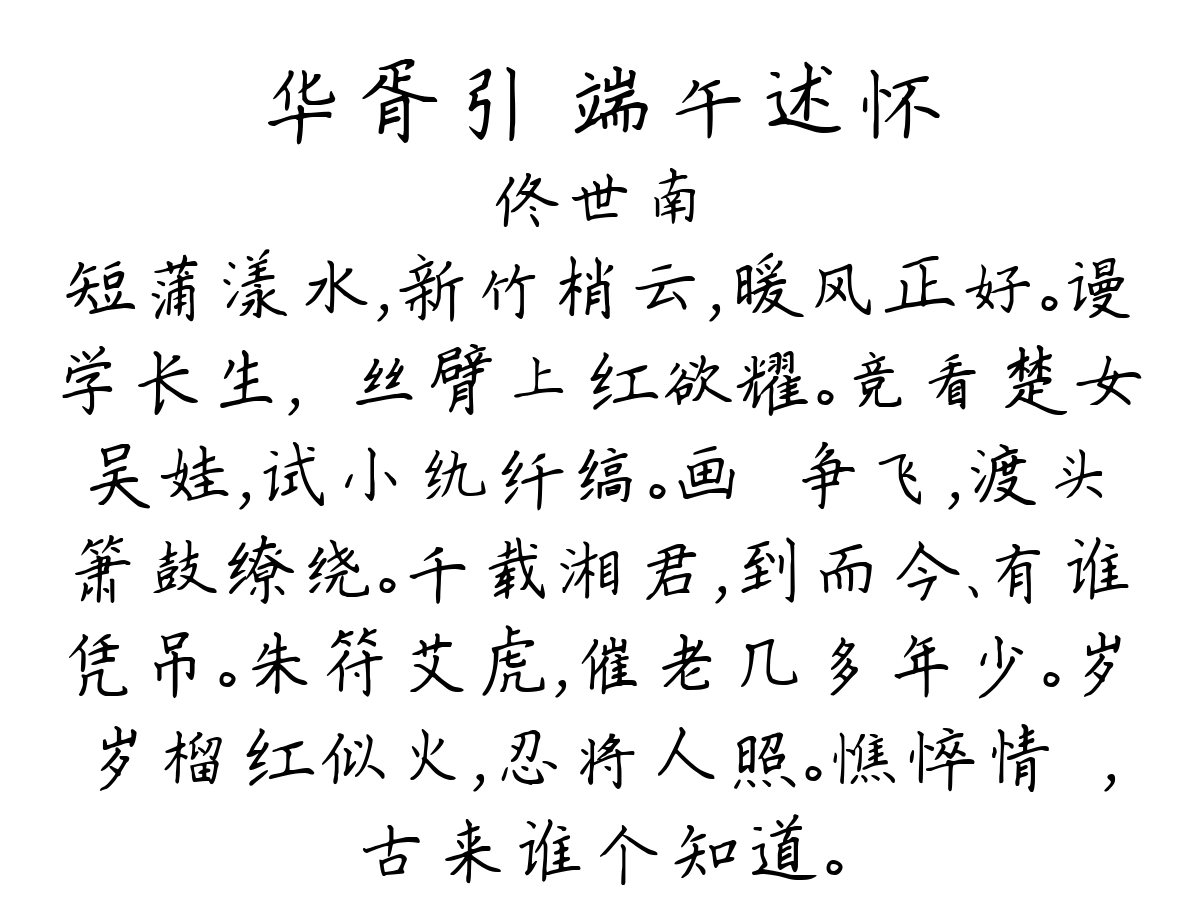 华胥引 端午述怀
佟世南
短蒲漾水,新竹梢云,暖风正好。谩
学长生, 丝臂上红欲耀。竞看楚女
吴娃,试小纨纤缟。画 争飞,渡头
箫鼓缭绕。千载湘君,到而今、有谁
凭吊。朱符艾虎,催老几多年少。岁
岁榴红似火,忍将人照。憔悴情 ,
古来谁个知道。